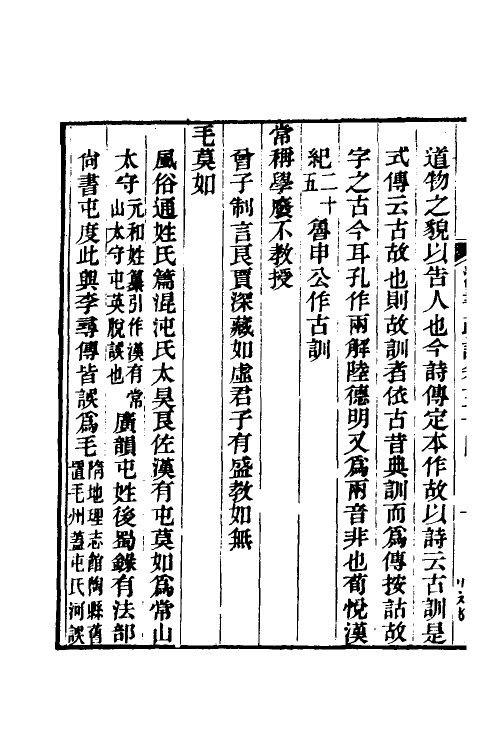 道物之貌以告人也今詩傳定本作故以詩云古訓是
式傳云古故也則故訓者依古昔典訓而爲傳按詁故
字之古今耳孔作兩解陸德明又爲兩音非也荀悅漢
紀二十五魯申公作古訓
常稱學廢不教授
曾子制言良賈深藏如虛君子有盛教如無
毛莫如
風俗通姓氏篇混沌氏太昊良佐漢有屯莫如爲常山
太守元和姓纂引作漢有常山太守屯英脫誤也廣韻屯姓後蜀錄有法部
尙書屯度此與李尋傳皆誤爲毛隋地理志館陶縣舊置毛州蓋屯氏河誤